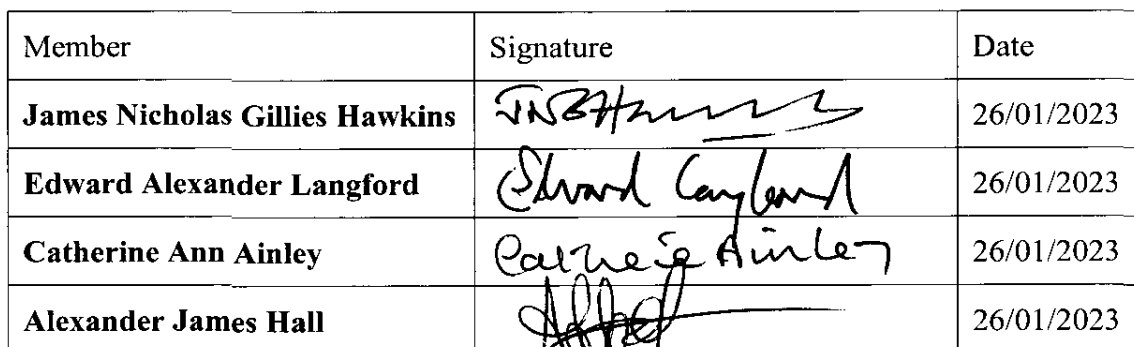 Member Signature Date
James Nicholas Gillies Hawkins JNGHawkins 26/01/2023
Edward Alexander Langford Edward Langford 26/01/2023
Catherine Ann Ainley Catherine Ainley 26/01/2023
Alexander James Hall 26/01/2023